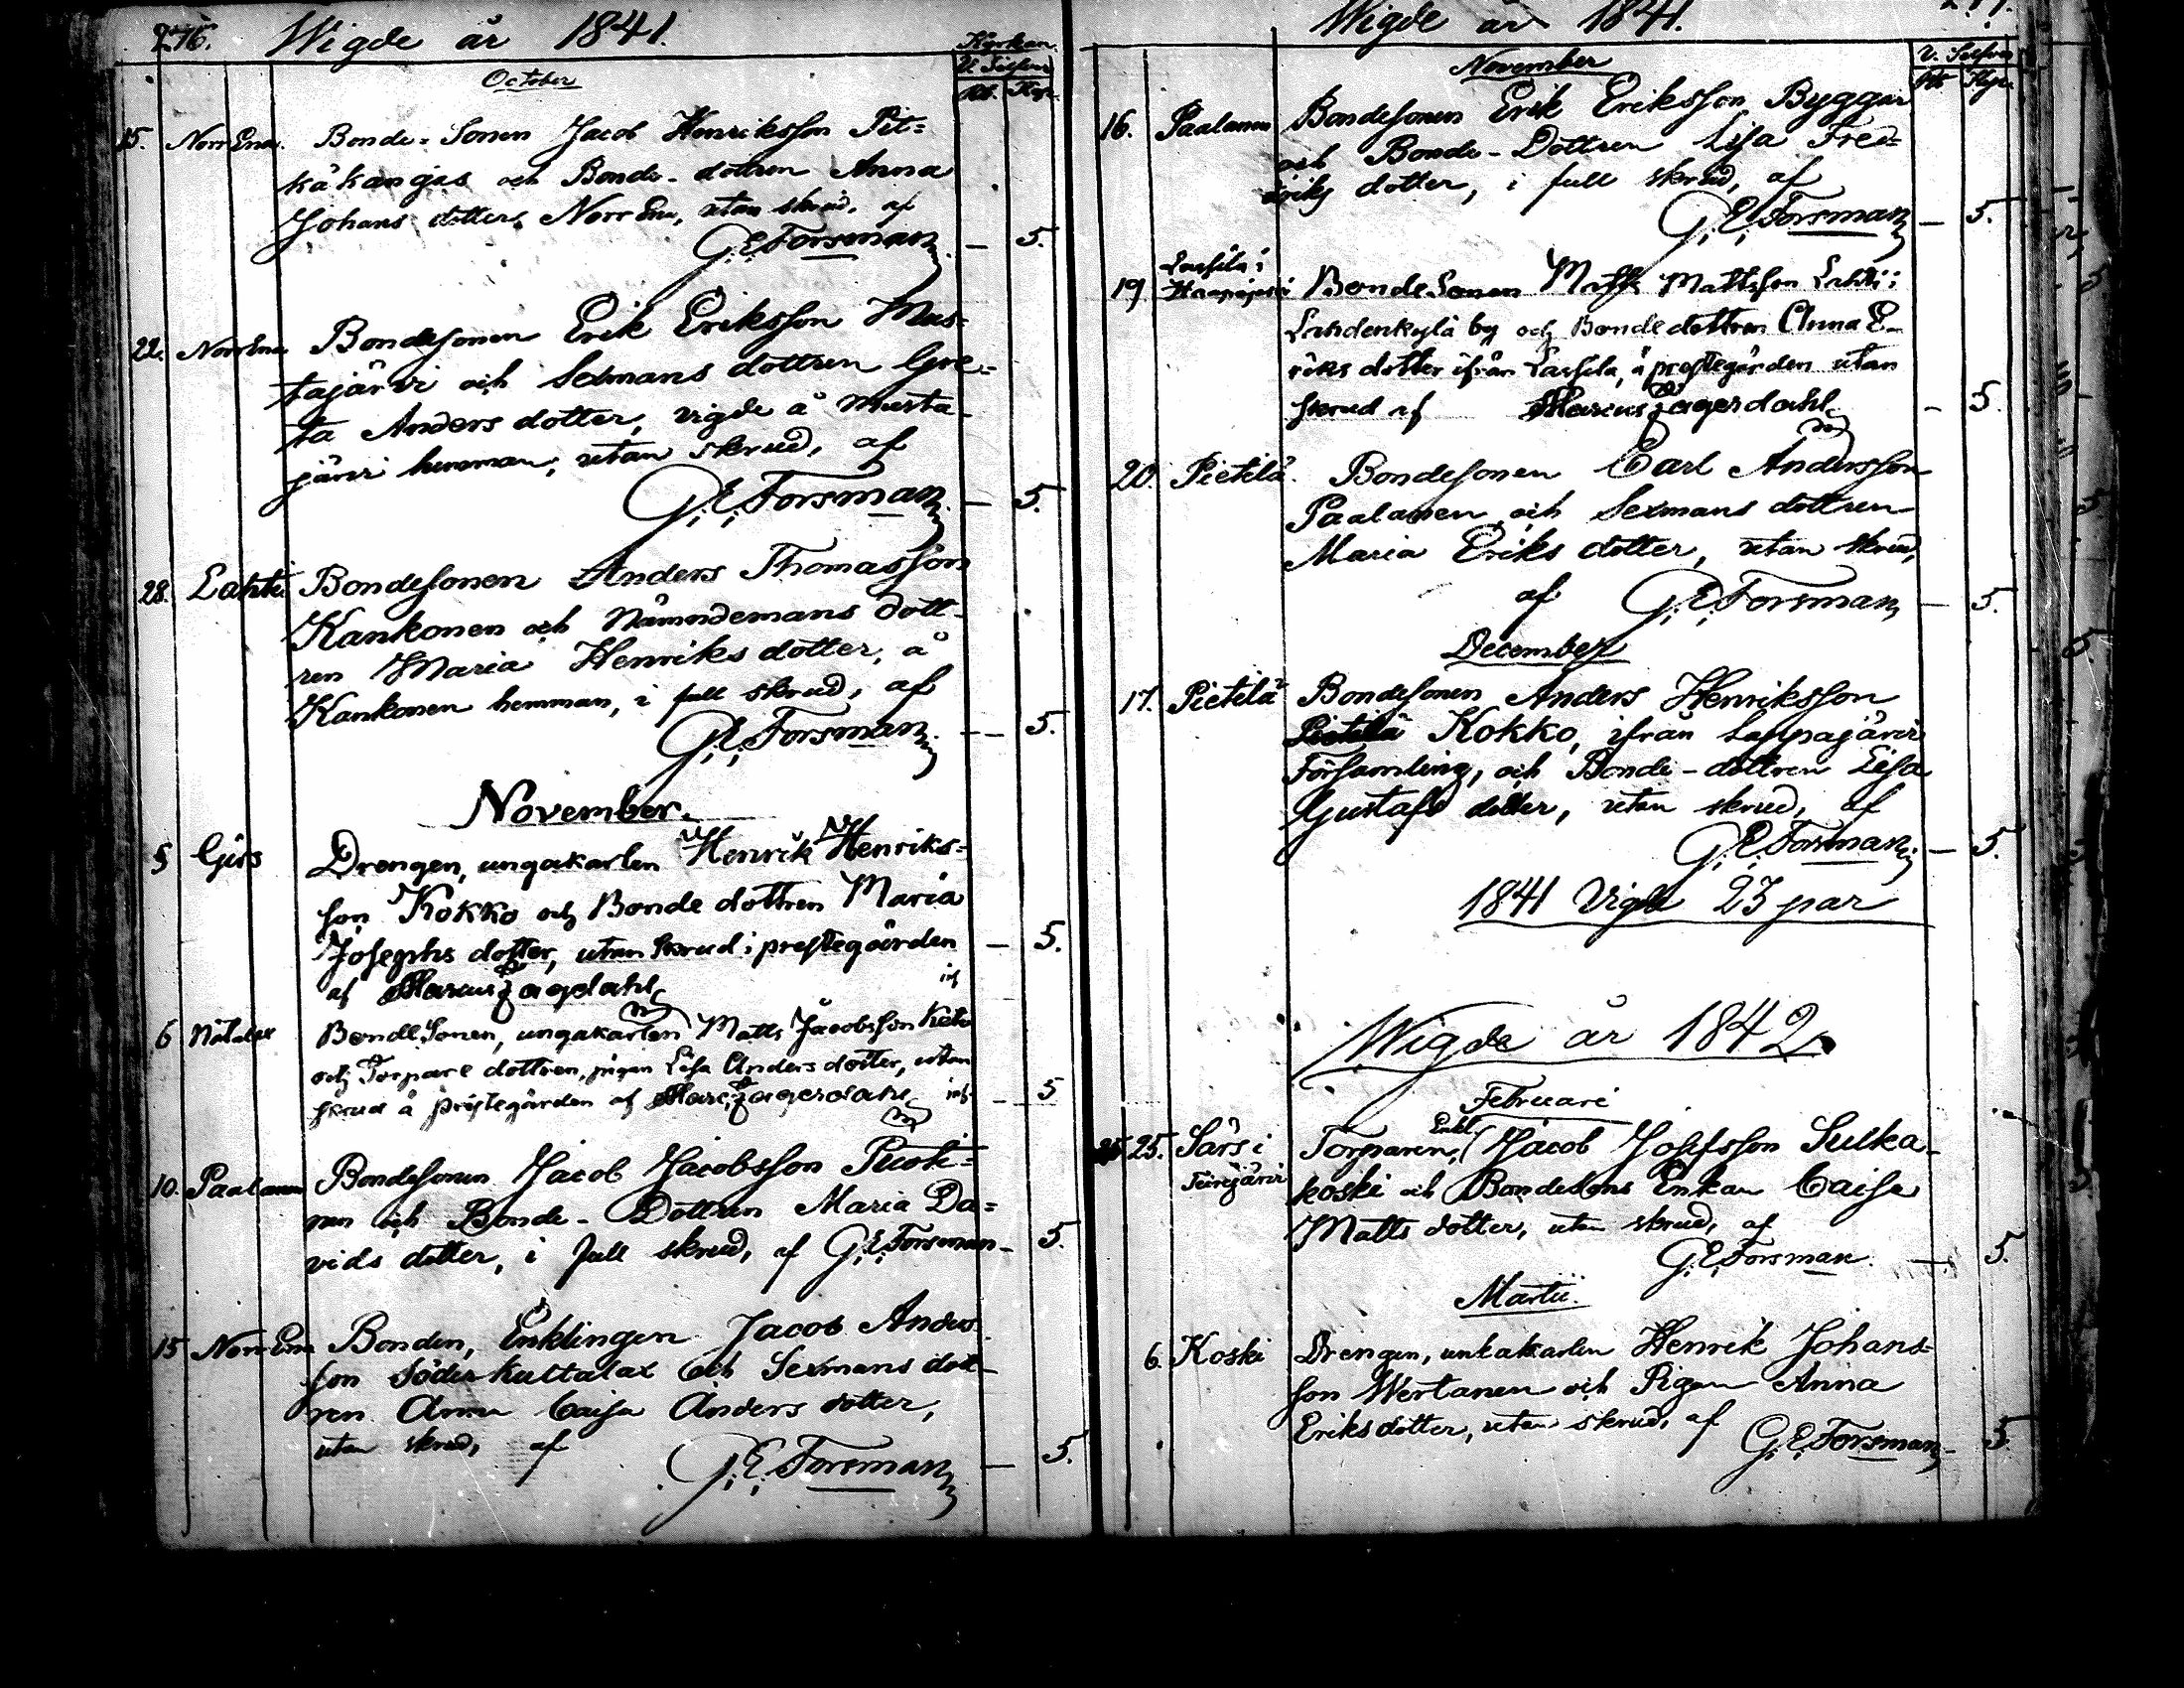 276. Wigde år 1841.
Kyrkan.
October
15. Norr Ena. Bonde-Sonen Jacob Henriksson Pit-
käkangas och Bonde-dottren Anna
Johans dotter Norr Ena, utan skrud, af
G. E. Forsman — 5.
22. Norr Ena Bondesonen Erik Eriksson Mus-
tajärvi och Sexmans dottren Gre-
ta Anders dotter, vigde å Musta-
järvi hemman, utan skrud, af
G. E. Forsman — 5.
28. Lahti Bondesonen Anders Thomasson
Kankonen och Nämndemans dott-
ren Maria Henriks dotter, å
Kankonen hemman, i full skrud, af
G. E. Forsman — 5.
November.
5 Girs Drengen, ungakarlen Henrik Henriks-
son Kokko och Bonde dottren Maria
Josephs dotter, utan skrud i prestegården — 5.
af Marcus Jagerdahl
6 Bonde Sonen, ungakarlen Matts Jacobsson Keto
och Torpare dottren, pigan Lisa Anders dotter, utan
skrud å prestegården af Marc. Jagerdahl — 5
10. Paalanen Bondesonen Jacob Jacobsson Puoti-
nen och Bonde-Dottren Maria Da-
vids dotter, i full skrud, af G. E. Forsman — 5.
15 Norr Ena Bonden, Enklingen Jacob Anders
son Söderkultalax och Sexmans dott-
ren Anna Caisa Anders dotter,
utan skrud, af
G. E. Forsman — 5.
Wigde år 1841. 277.
November
16. Paalanen Bondesonen Erik Eriksson Byggar
och Bonde-Dottren Lisa Fred-
riks dotter, i full skrud, af
G. E. Forsman — 5.
19 Lassila i Haapajärvi Bonde Sonen Matts Mattsson Lahti i
Lahdenkylä by och Bonde dottren Anna E-
riks dotter ifrån Lassila, å prestegården utan
skrud af Marcus Jagerdahl — 5.
20. Pietilä. Bondesonen Carl Andersson
Paalanen och Sexmans dottren
Maria Eriks dotter, utan skrud,
af G. E. Forsman — 5.
December
17. Pietilä Bondesonen Anders Henriksson
Pietilä Kokko, ifrån Lappajärvi
Församling, och Bonde-dottren Lisa
Gustafs dotter, utan skrud, af
G. E. Forsman — 5.
1841 Vigde 23 par
Wigde år 1842.
Februari
25. Särs i Torparen, Enkl. Jacob Josefsson Sulka-
koski och Bondesons Enkan Caisa
Matts dotter, utan skrud, af
G. E. Forsman. — 5.
Martii.
6. Koski Drengen, unkakarlen Henrik Johans-
son Wertanen och Pigan Anna
Eriksdotter, utan skrud, af G. E. Forsman — 5.